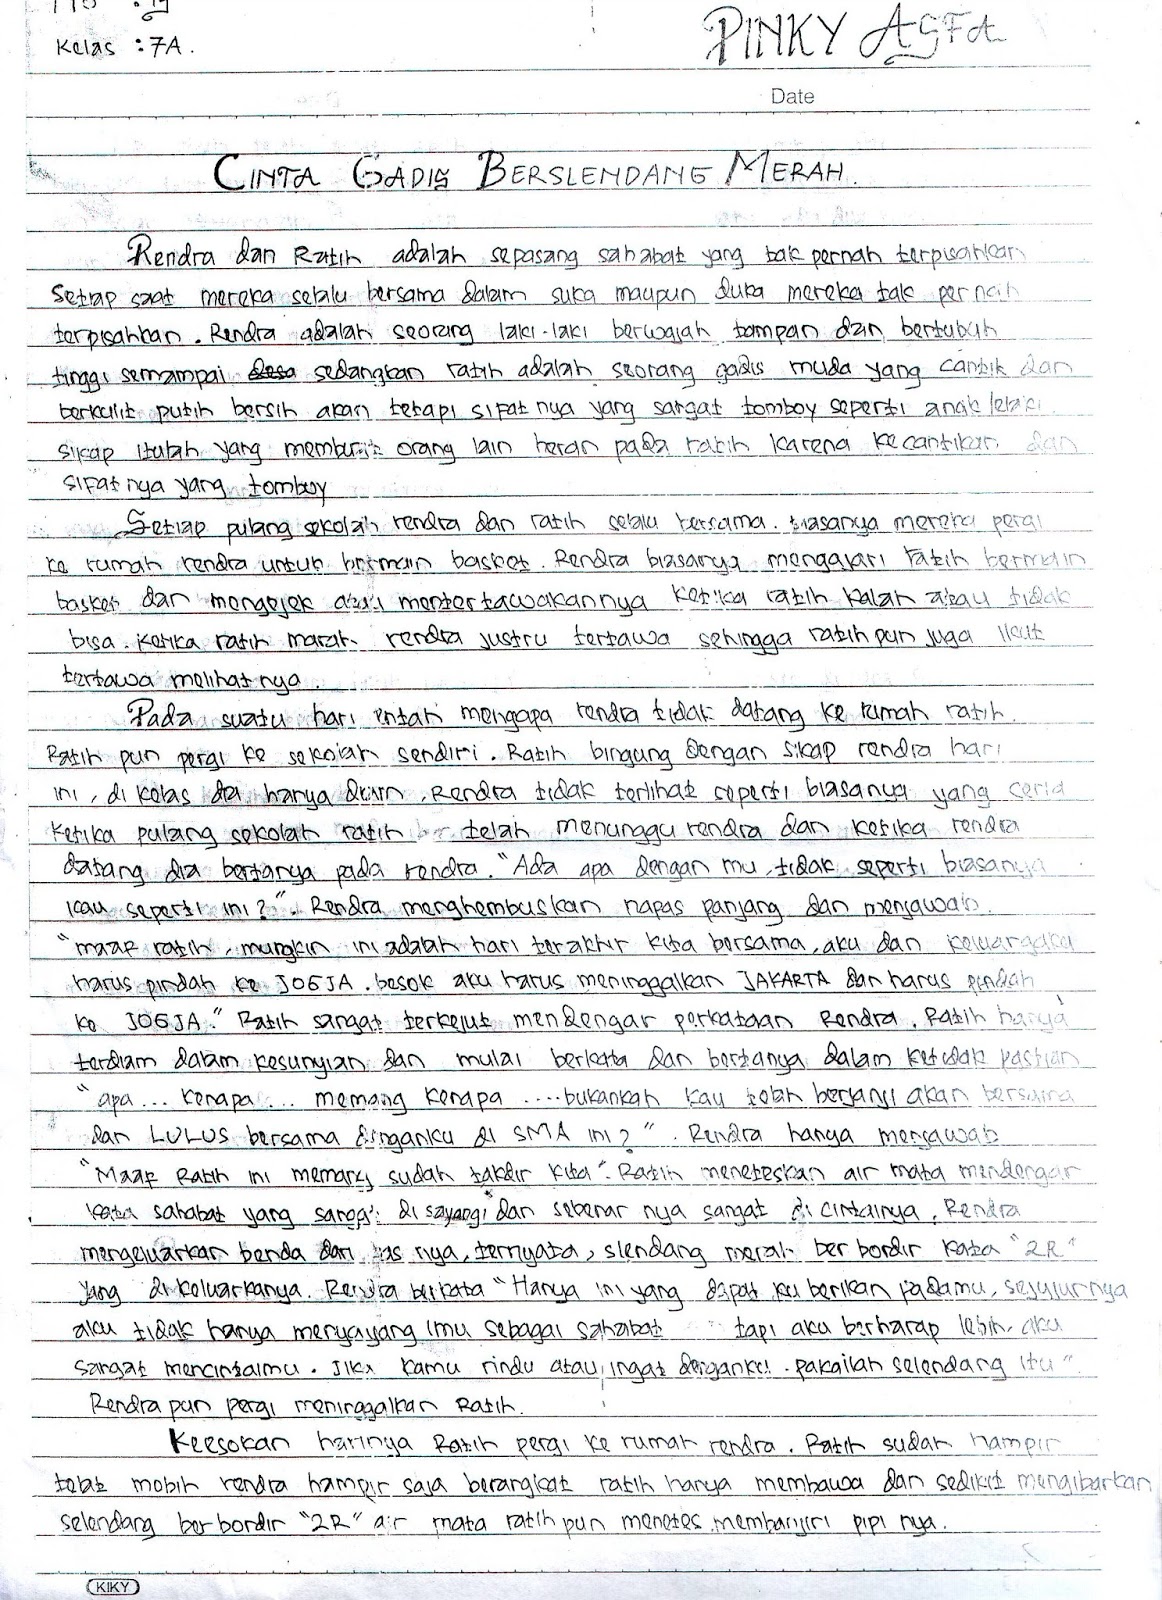 Kelas : 7A.
PINKY ASFA
Date
CINTA GADIS BERSLENDANG MERAH.
Rendra dan Ratih adalah sepasang sahabat yang tak pernah terpisahkan
Setiap saat mereka selalu bersama dalam suka maupun duka mereka tak pernah
terpisahkan. Rendra adalah seorang laki-laki berwajah tampan dan bertubuh
tinggi semampai sedangkan ratih adalah seorang gadis muda yang cantik dan
berkulit putih bersih akan tetapi sifat nya yang sangat tomboy seperti anak lelaki.
sikap itulah yang membuat orang lain heran pada ratih karena kecantikan dan
sifatnya yang tomboy
Setiap pulang sekolah rendra dan ratih selalu bersama. biasanya mereka pergi
ke rumah rendra untuk bermain basket. Rendra biasanya mengajari ratih bermain
basket dan mengejek atau mentertawakannya ketika ratih kalah atau tidak
bisa. ketika ratih marah rendra justru tertawa sehingga ratih pun juga ikut
tertawa melihatnya.
Pada suatu hari entah mengapa rendra tidak datang ke rumah ratih.
Ratih pun pergi ke sekolah sendiri. Ratih bingung dengan sikap rendra hari
ini, di kelas dia hanya diam. Rendra tidak terlihat seperti biasanya yang ceria
ketika pulang sekolah ratih telah menunggu rendra dan ketika rendra
datang dia bertanya pada rendra. "Ada apa dengan mu, tidak seperti biasanya
kau seperti ini?". Rendra menghembuskan napas panjang dan menjawab.
"maaf ratih, mungkin ini adalah hari terakhir kita bersama, aku dan keluargaku
harus pindah ke JOGJA. besok aku harus meninggalkan JAKARTA dan harus pindah
ke JOGJA." Ratih sangat terkejut mendengar perkataan Rendra. Ratih hanya
terdiam dalam kesunyian dan mulai berkata dan bertanya dalam ketidak pastian
"apa... kenapa... memang kenapa ....bukankah kau telah berjanji akan bersama
dan LULUS bersama denganku di SMA ini?". Rendra hanya menjawab
"Maaf Ratih ini memang sudah takdir kita". Ratih meneteskan air mata mendengar
kata sahabat yang sangat di sayangi dan sebenar nya sangat di cintainya. Rendra
mengeluarkan benda dari tas nya, ternyata, slendang merah ber bordir kata "2R"
yang di keluarkanya. Rendra berkata "Hanya ini yang dapat ku berikan padamu, sejujurnya
aku tidak hanya menyayang imu sebagai sahabat tapi aku berharap lebih. aku
sangat mencintaimu. Jika kamu rindu atau ingat denganku. pakailah selendang itu".
Rendra pun pergi meninggalkan Ratih.
Keesokan harinya Ratih pergi ke rumah rendra. Ratih sudah hampir
telat mobih rendra hampir saja berangkat ratih hanya membawa dan sedikit mengibarkan
selendang ber bordir "2R" air mata ratih pun menetes membanjiri pipi nya.
KIKY